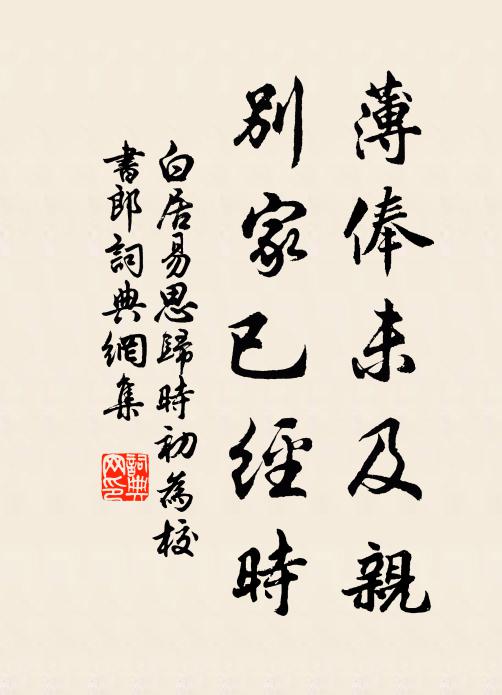 薄俸未及親
別家已經時
白居易思歸時初為校
書郎詞典網集
詞典
网印